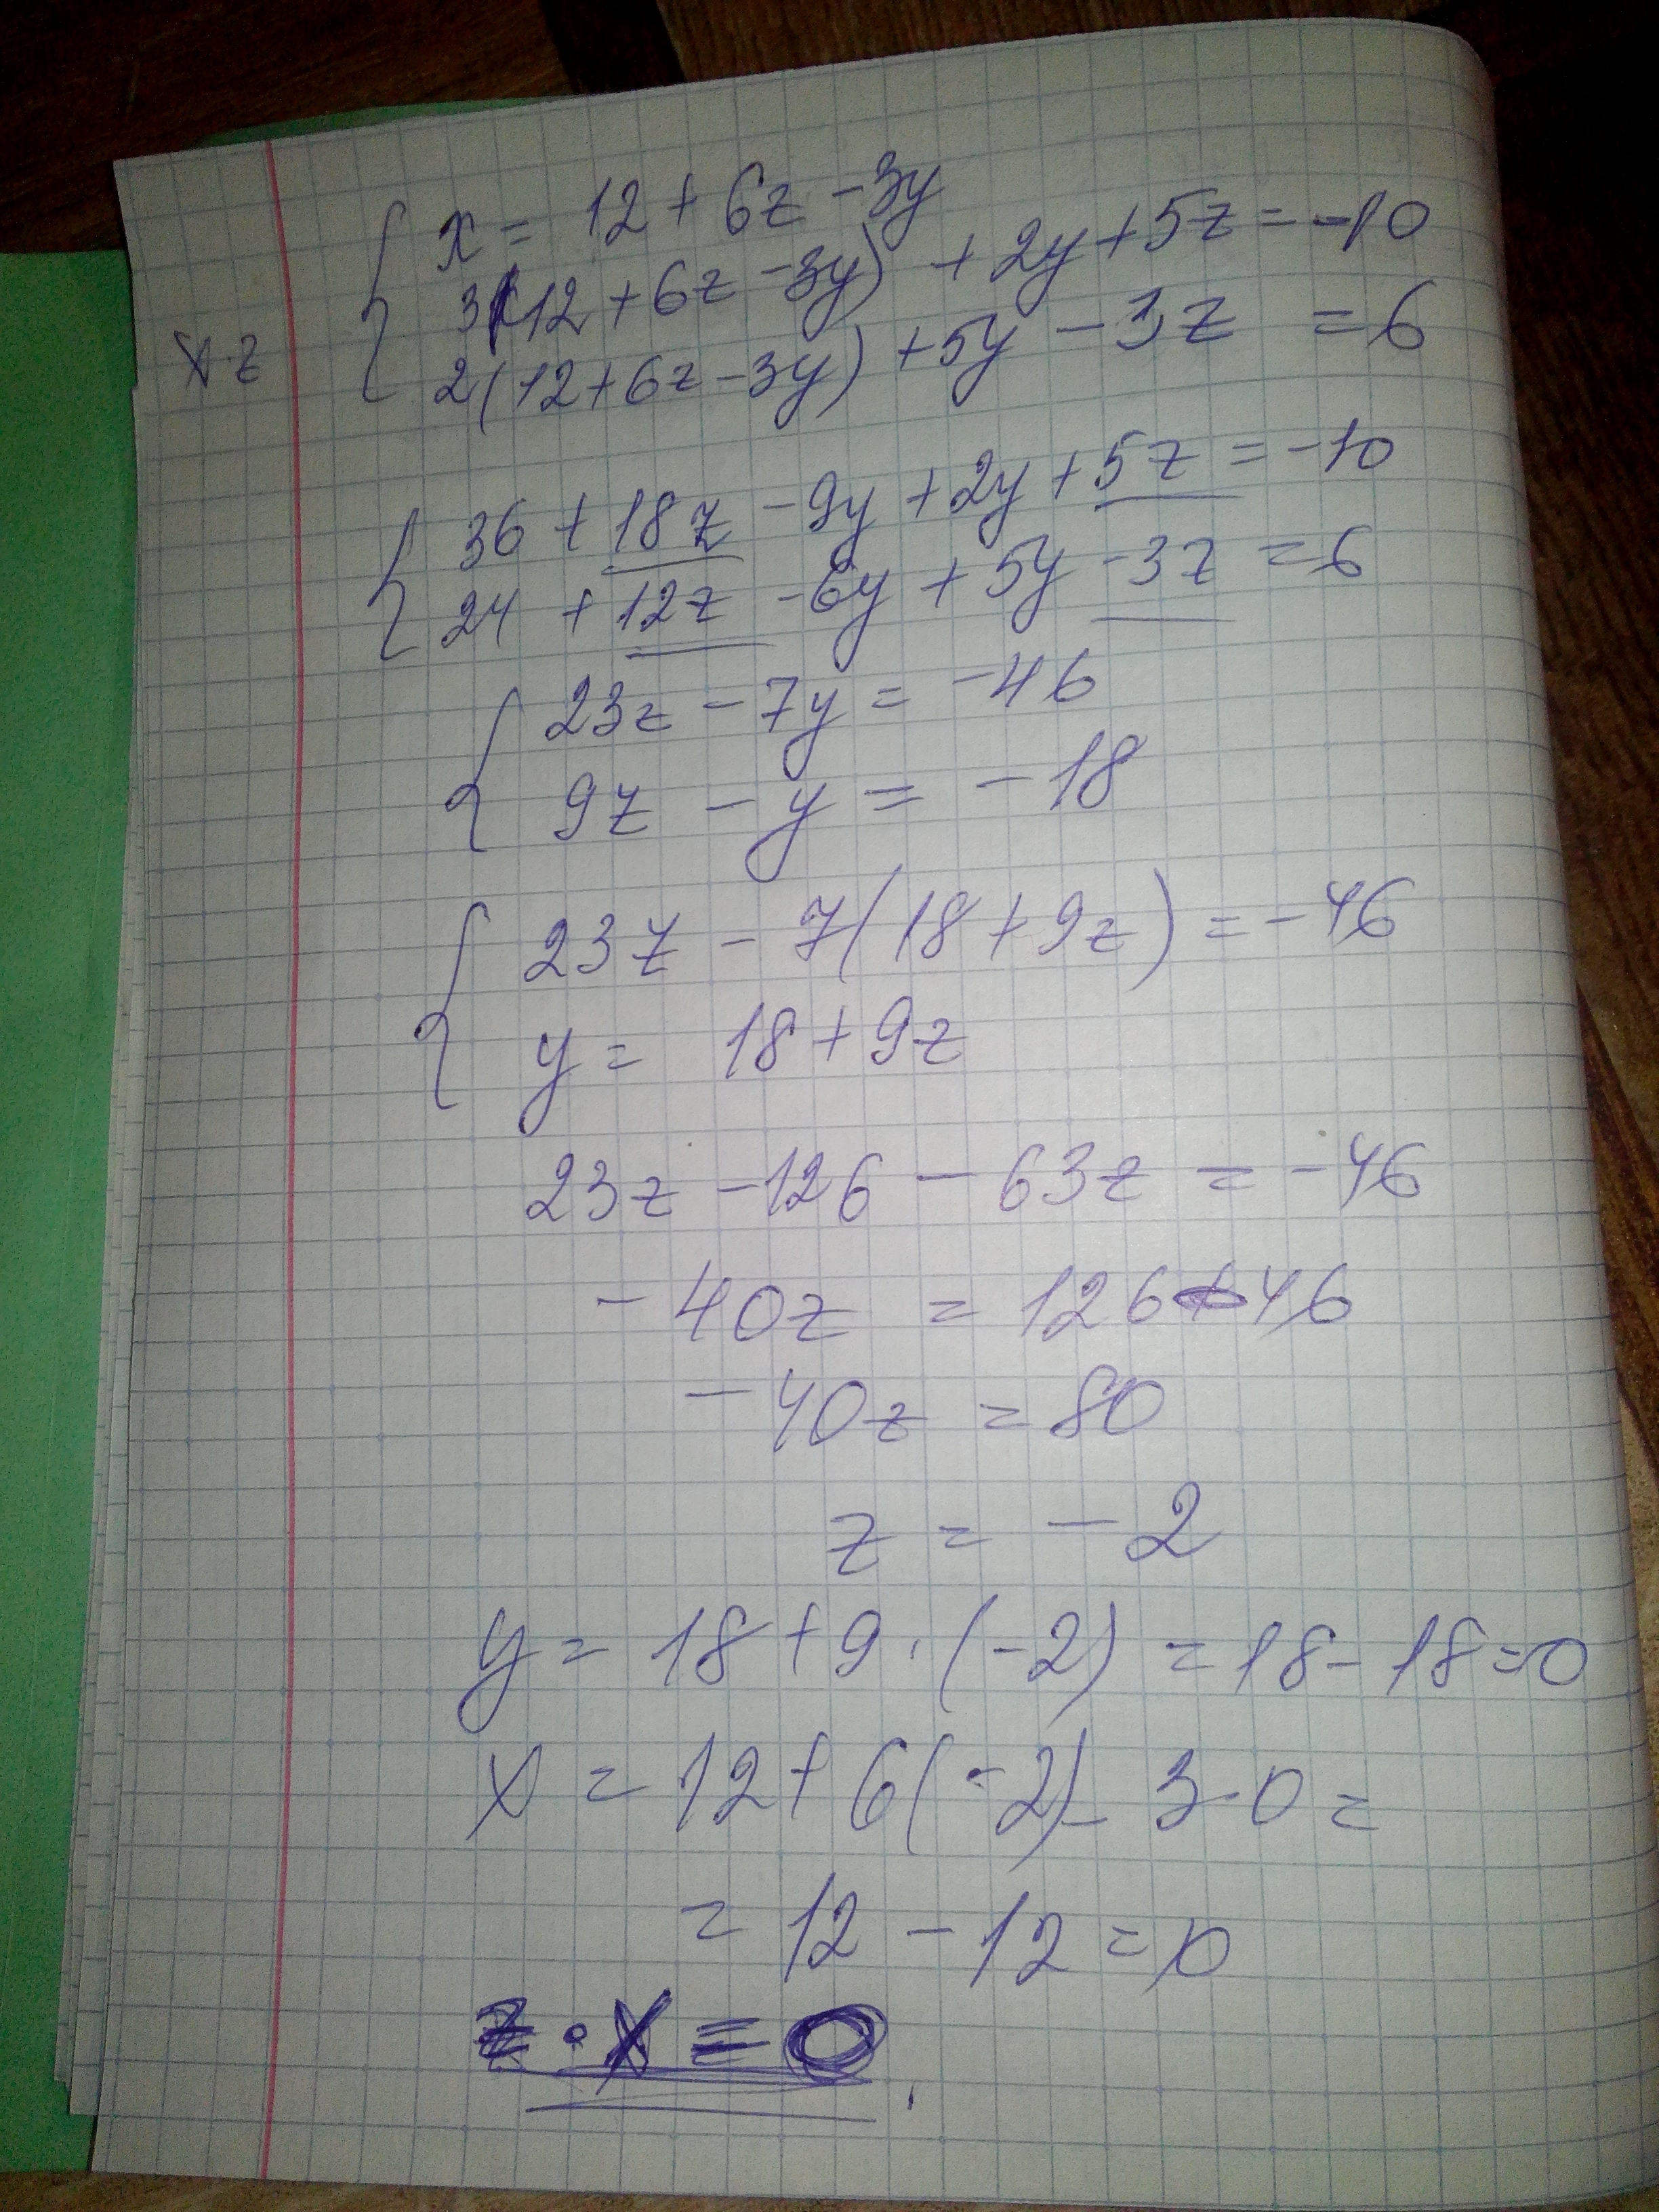 x = 12 + 6z - 3y
3(12 + 6z - 3y) + 2y + 5z = -10
x·z
2(12 + 6z - 3y) + 5y - 3z = 6
36 + 18z - 9y + 2y + 5z = -10
24 + 12z - 6y + 5y - 3z = 6
23z - 7y = -46
9z - y = -18
23z - 7(18 + 9z) = -46
y = 18 + 9z
23z - 126 - 63z = -46
-40z = 126 - 46
-40z = 80
z = -2
y = 18 + 9 · (-2) = 18 - 18 = 0
x = 12 + 6(-2) - 3·0 =
= 12 - 12 = 0
z · x = 0.